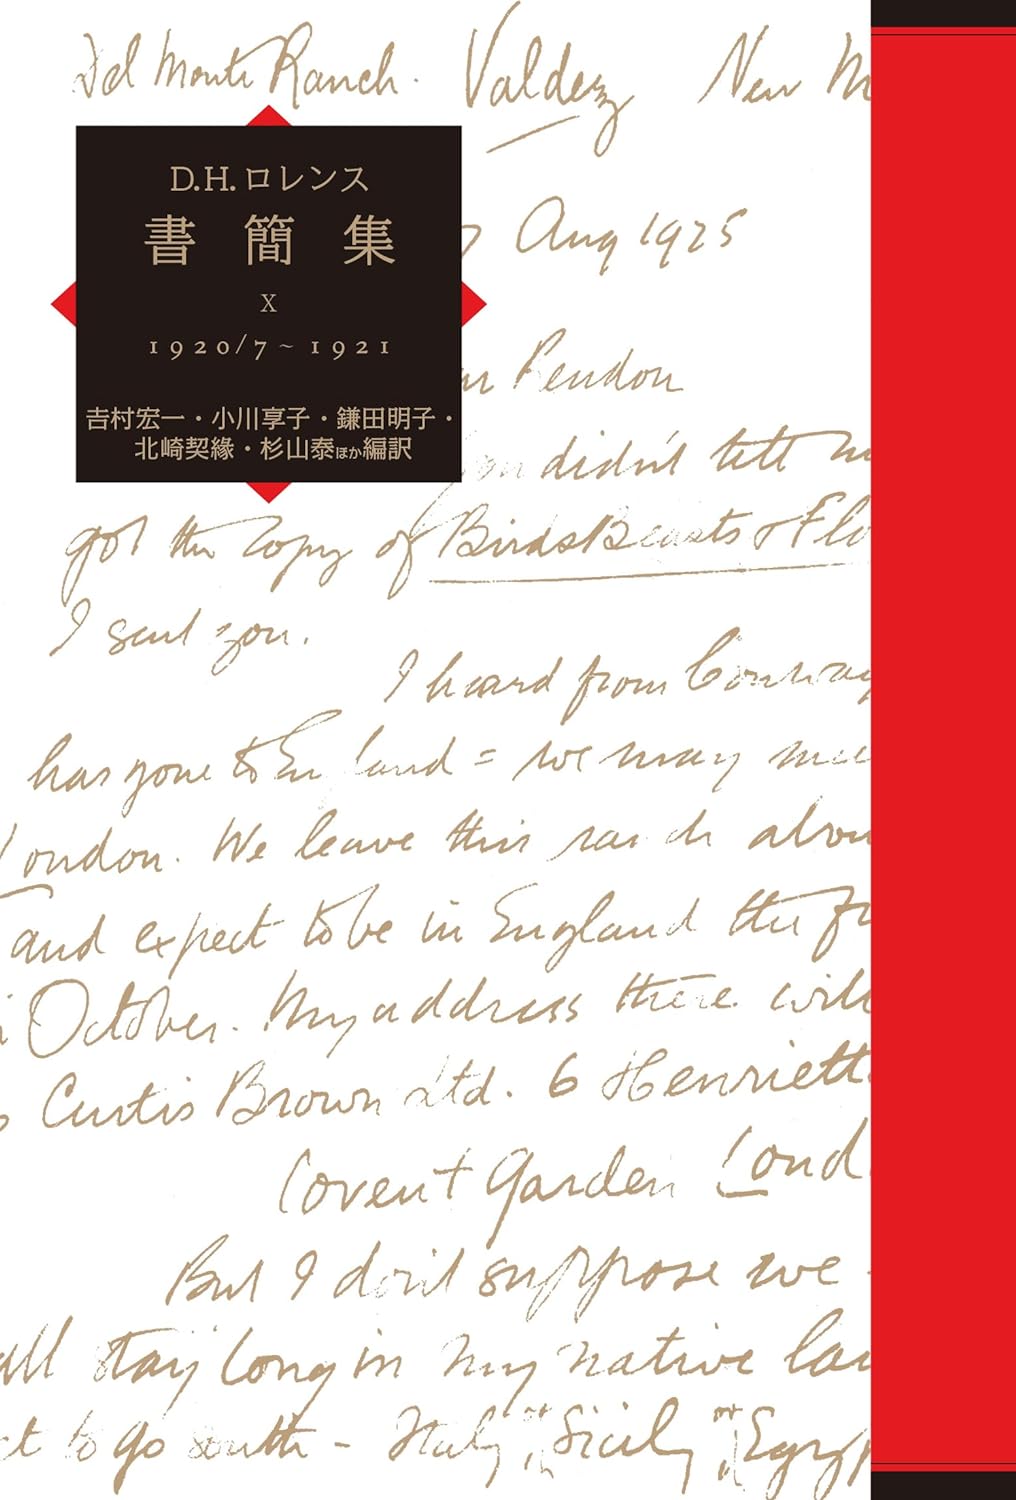 Del Monte Ranch. Valdez New M
D.H.ロレンス
書簡集
X
1920/7~1921
吉村宏一・小川享子・鎌田明子・
北崎契緣・杉山泰ほか編訳
Aug 1925
Rendon
you didn't tell
got the copy of Birds Beasts & Flo
I sent you.
I heard from Conway
has gone to England = we may mee
London. We leave this ranch abou
and expect to be in England the fi
October. My address there will
Curtis Brown Ltd. 6 Henriett
Covent Garden Lond
But I don't suppose we
all stay long in my native lan
to go south - Italy, Sicily, Egyp